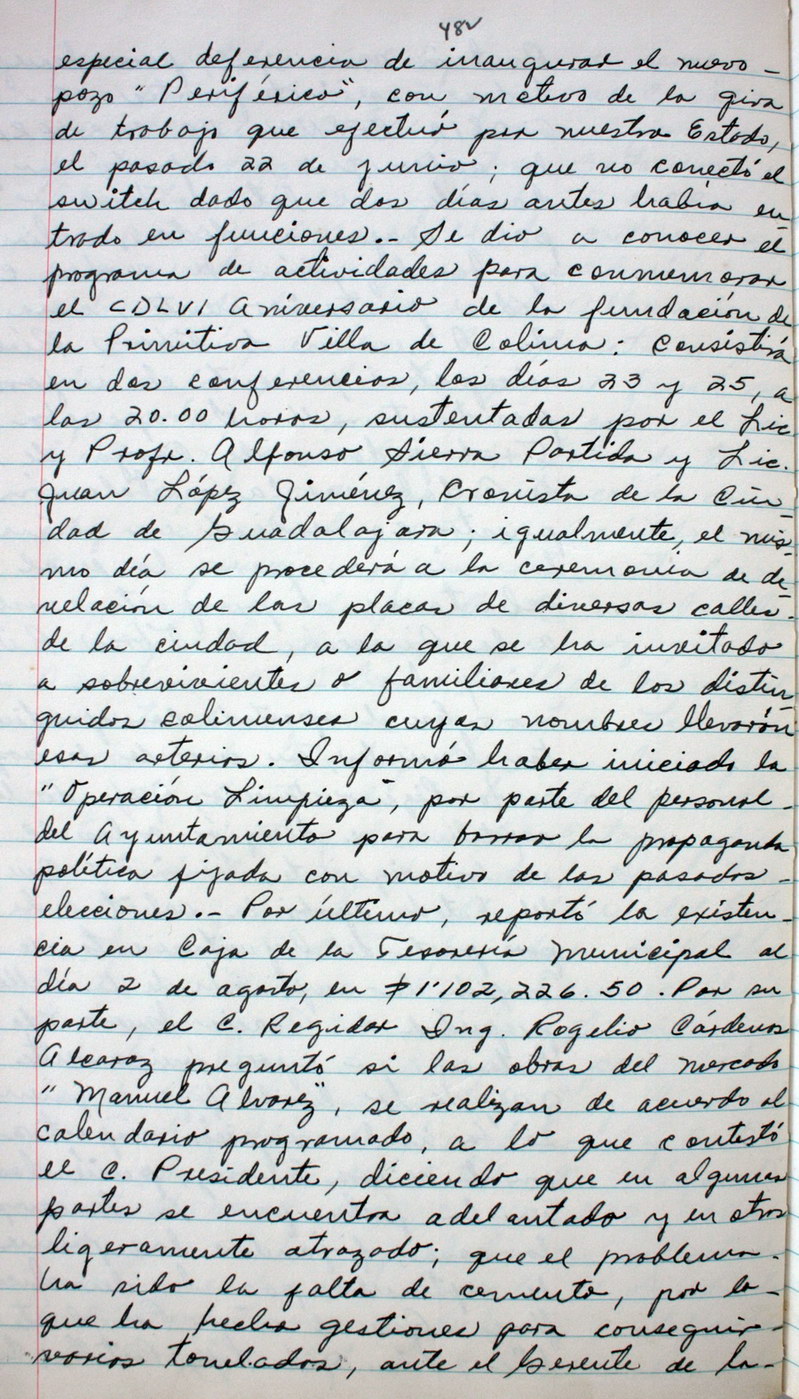 482
especial deferencia de inaugurar el nuevo -
pozo "Periférico", con motivo de la gira
de trabajo que efectuó por nuestro Estado,
el pasado 22 de junio; que no conectó el
switch dado que dos días antes había en-
trado en funciones.- Se dio a conocer el
programa de actividades para conmemorar
el CDLVI Aniversario de la fundación de
la Primitiva Villa de Colima: consistirá
en dos conferencias, los días 23 y 25, a
las 20.00 horas, sustentadas por el Lic
y Profr. Alfonso Sierra Partida y Lic.
Juan López Jiménez, Cronista de la Ciu-
dad de Guadalajara; igualmente, el mis-
mo día se procederá a la ceremonia de de-
velación de las placas de diversas calles-
de la ciudad, a la que se ha invitado
a sobrevivientes o familiares de los distin-
guidos colimenses cuyos nombres llevarán
esas arterias. Informó haber iniciado la
"Operación Limpieza", por parte del personal-
del Ayuntamiento para borrar la propaganda
política fijada con motivo de las pasadas -
elecciones.- Por último, reportó la existen-
cia en Caja de la Tesorería Municipal al
día 2 de agosto, en $1'102,226.50. Por su
parte, el C. Regidor Ing. Rogelio Cárdenas
Alcaraz preguntó si las obras del mercado
"Manuel Alvarez", se realizan de acuerdo al
calendario programado, a lo que contestó
el C. Presidente, diciendo que en algunas
partes se encuentra adelantado y en otras
ligeramente atrazado; que el problema-
ha sido la falta de cemento, por lo-
que ha hecho gestiones para conseguir-
varias toneladas, ante el Gerente de la-